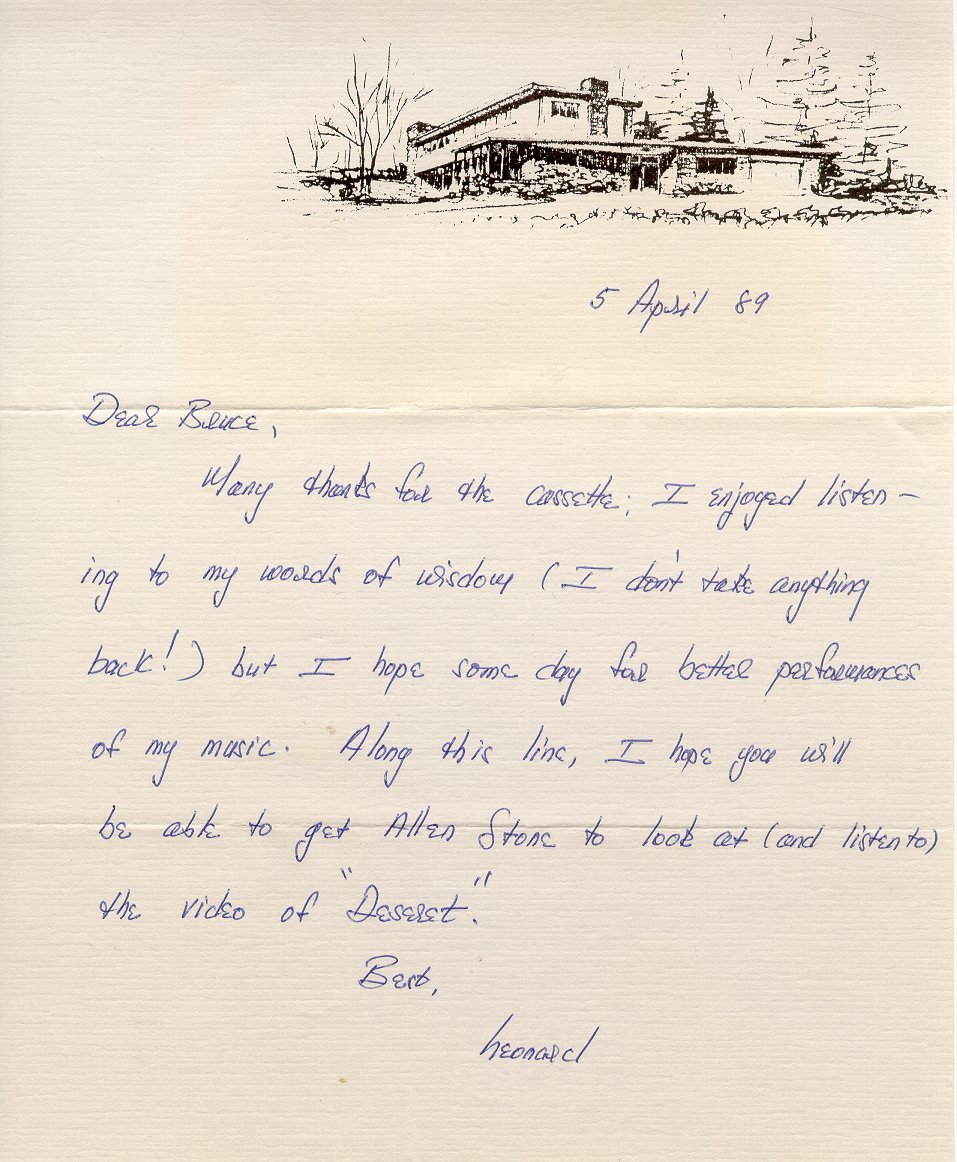 5 April 89
Dear Bruce,
Many thanks for the cassette; I enjoyed listen-
ing to my words of wisdom (I don't take anything
back!) but I hope some day for better performances
of my music. Along this line, I hope you will
be able to get Allen Stone to look at (and listen to)
the video of "Deseret".
Best,
Leonard